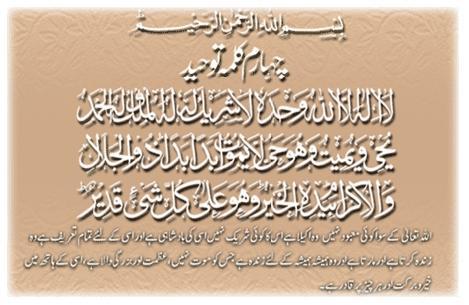 بِسْمِ اللهِ الرَّحْمٰنِ الرَّحِيْمِ
چہارم کلمہ توحید
لا اله الا الله وحده لا شريك له له الملك وله الحمد
يحي ويميت وهو حي لا يموت ابدا ابدا ذو الجلال
والاكرام بيده الخير وهو على كل شيء قدير
اللہ تعالیٰ کے سوا کوئی معبود نہیں وہ اکیلا ہے اس کا کوئی شریک نہیں اسی کی بادشاہی ہے اور اسی کے لئے تمام تعریف ہے وہ
زندہ کرتا ہے اور مارتا ہے اور وہ ہمیشہ ہمیشہ کے لئے زندہ ہے جس کو موت نہیں، عظمت اور بزرگی والا ہے، اسی کے ہاتھ میں
خیر و برکت اور ہر چیز پر قادر ہے۔